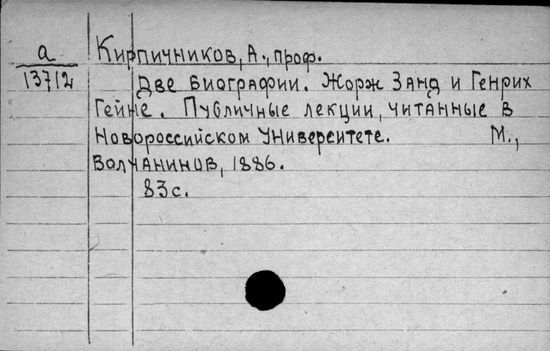 а
13712
Кирпичников, А., проф.
Две биографии. Жорж Занд и Генрих
Гейне. Публичные лекции, читанные в
Новороссийском Университете. М.,
Волчанинов, 1886.
83 с.